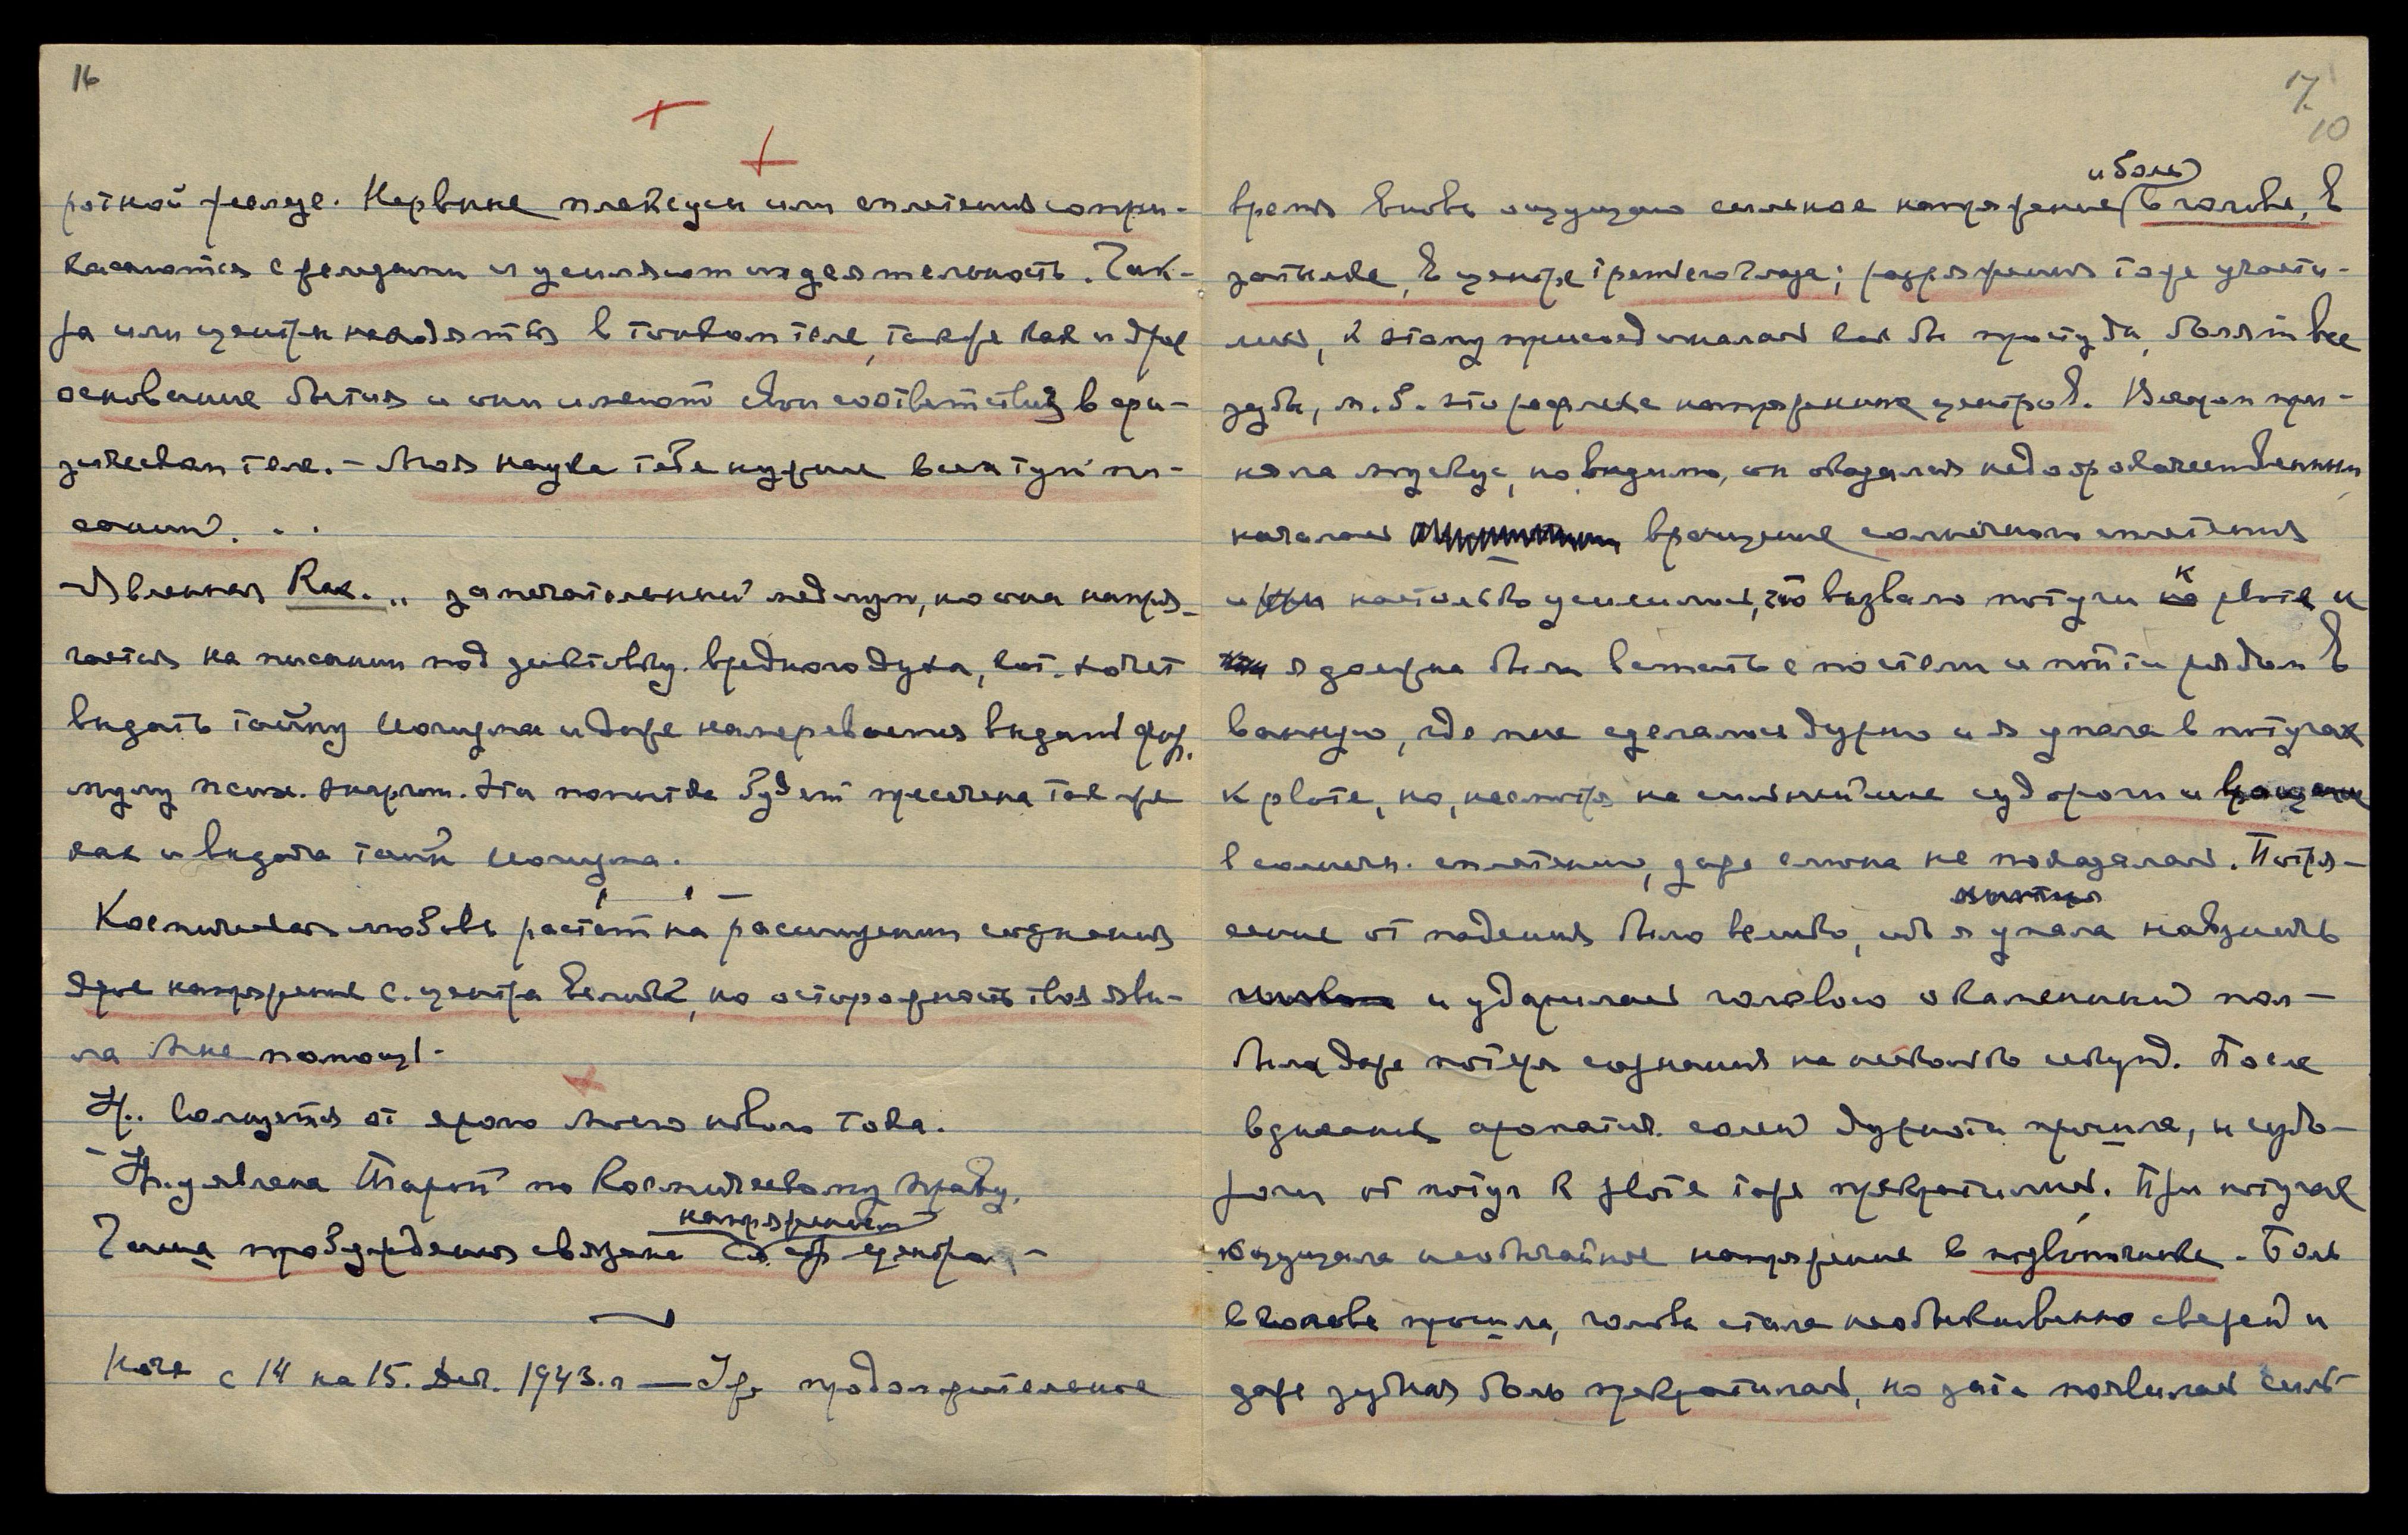 16
ротной железе. Нервные плексусы или сплетения сопри-
касаются с железами и усиляют их деятельность. Чак-
ры или центры находятся в тонком теле, также как и др.
основание бытия и они имеют свои соответствия в фи-
зическом теле. – Моя наука тебе нужнее всех групп пи-
саний. . .
– Явленная Rak. .. замечательный медиум, но она напря-
гается на писании под диктовку вредного духа, кот. хочет
выдать тайну Иогизма и даже намеревается выдать фор.
мулу псих. энергии. Эта попытка будет пресечена так же
как и выдача тайн Иогизма.
Космическая любовь растет на расширении сознания
Ярое напряжение с. центра велико, но осторожность твоя яви-
ла Мне помощь.
Ур. волнуется от ярого Моего нового тока.
– Ур. уявлена Тарой по Космическому праву.
напряжением
Чаша пробуждения связана с центра –
Ночь с 14 на 15. Дек. 1943. г — Уже продолжительное
17
10
и боль
время вновь ощущаю сильное напряжение в голове, в
затылке, в центре третьего глаза; разряжения тоже участи-
лись, к этому присоединилась как бы простуда, болят все
зубы, м. б. это рефлекс напряжения центров. Вечером при-
няла мускус, но, видимо, он оказался недоброкачественным,
началось вращение солнечного сплетения
и настолько усилилось, что вызвало потуги к рвоте и
я должна была встать с постели и пойти рядом в
ванную, где мне сделалось дурно и я упала в потугах
к рвоте, но, несмотря на сильнейшие судороги и вращение
в солнечн. сплетении, даже слюна не показалась. Потря-
сение от падения было велико, ибо я упала навзничь
и ударилась головою о каменный пол –
была даже потеря сознания на несколько секунд. После
вдыхания ароматич. солей дурнота прошла, и судо-
роги от потуг к рвоте тоже прекратились. При потугах
ощущала необычайное напряжение в подвздошке. Боль
в голове прошла, голова стала необыкновенно свежей и
даже зубная боль прекратилась, но зато появилась силь-